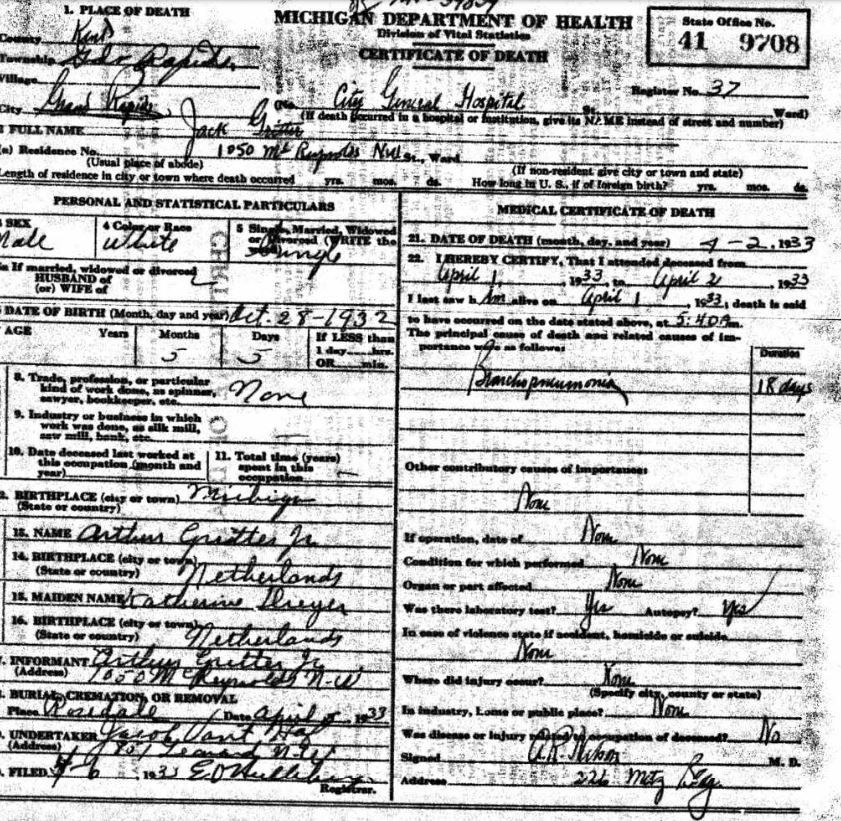 1. PLACE OF DEATH
MICHIGAN DEPARTMENT OF HEALTH
Division of Vital Statistics
CERTIFICATE OF DEATH
State Office No.
41 9708
County Kent
Township Gd. Rapids
Village
City Grand Rapids
Register No. 37
(No. City General Hospital St. Ward)
(If death occurred in a hospital or institution, give its NAME instead of street and number)
FULL NAME Jack Gritter
(a) Residence No. 1050 McReynolds N.W. St., Ward
(Usual place of abode)
(If non-resident give city or town and state)
Length of residence in city or town where death occurred yrs. mos. ds. How long in U. S., if of foreign birth? yrs. mos. ds.
PERSONAL AND STATISTICAL PARTICULARS
SEX
Male
4 Color or Race
White
5 Single, Married, Widowed
or Divorced (WRITE the
Single
If married, widowed or divorced
HUSBAND of
(or) WIFE of
DATE OF BIRTH (Month, day and year) Oct. 28-1932
AGE Years Months Days If LESS than
1 day hrs.
OR min.
5 5
8. Trade, profession, or particular
kind of work done, as spinner,
sawyer, bookkeeper, etc. None
9. Industry or business in which
work was done, as silk mill,
saw mill, bank, etc.
10. Date deceased last worked at
this occupation (month and
year)
11. Total time (years)
spent in this
occupation
BIRTHPLACE (city or town) Michigan
(State or country)
13. NAME Arthur Gritter Jr
14. BIRTHPLACE (city or town)
(State or country) Netherlands
15. MAIDEN NAME Katherine Dreyer
16. BIRTHPLACE (city or town)
(State or country) Netherlands
INFORMANT Arthur Gritter Jr
(Address) 1050 McReynolds N-W
BURIAL, CREMATION, OR REMOVAL
Place Rosedale Date April 5 1933
UNDERTAKER Jacob Vant Hof
(Address) 851 Leonard N.W.
FILED 4-6 1933
Registrar.
MEDICAL CERTIFICATE OF DEATH
21. DATE OF DEATH (month, day, and year) 4-2, 1933
22. I HEREBY CERTIFY, That I attended deceased from
April 1, 1933 to April 2, 1933
I last saw him alive on April 1, 1933; death is said
to have occurred on the date stated above, at 5:40 A.m.
The principal cause of death and related causes of im-
portance were as follows:
Duration
Bronchopneumonia 18 days
Other contributory causes of importance:
None
If operation, date of None
Condition for which performed None
Organ or part affected None
Was there laboratory test? Yes Autopsy? Yes
In case of violence state if accident, homicide or suicide
None
Where did injury occur? None
(Specify city, county or state)
In industry, home or public place? None
Was disease or injury related to occupation of deceased? No
Signed M. D.
Address 226 Metz Bldg.